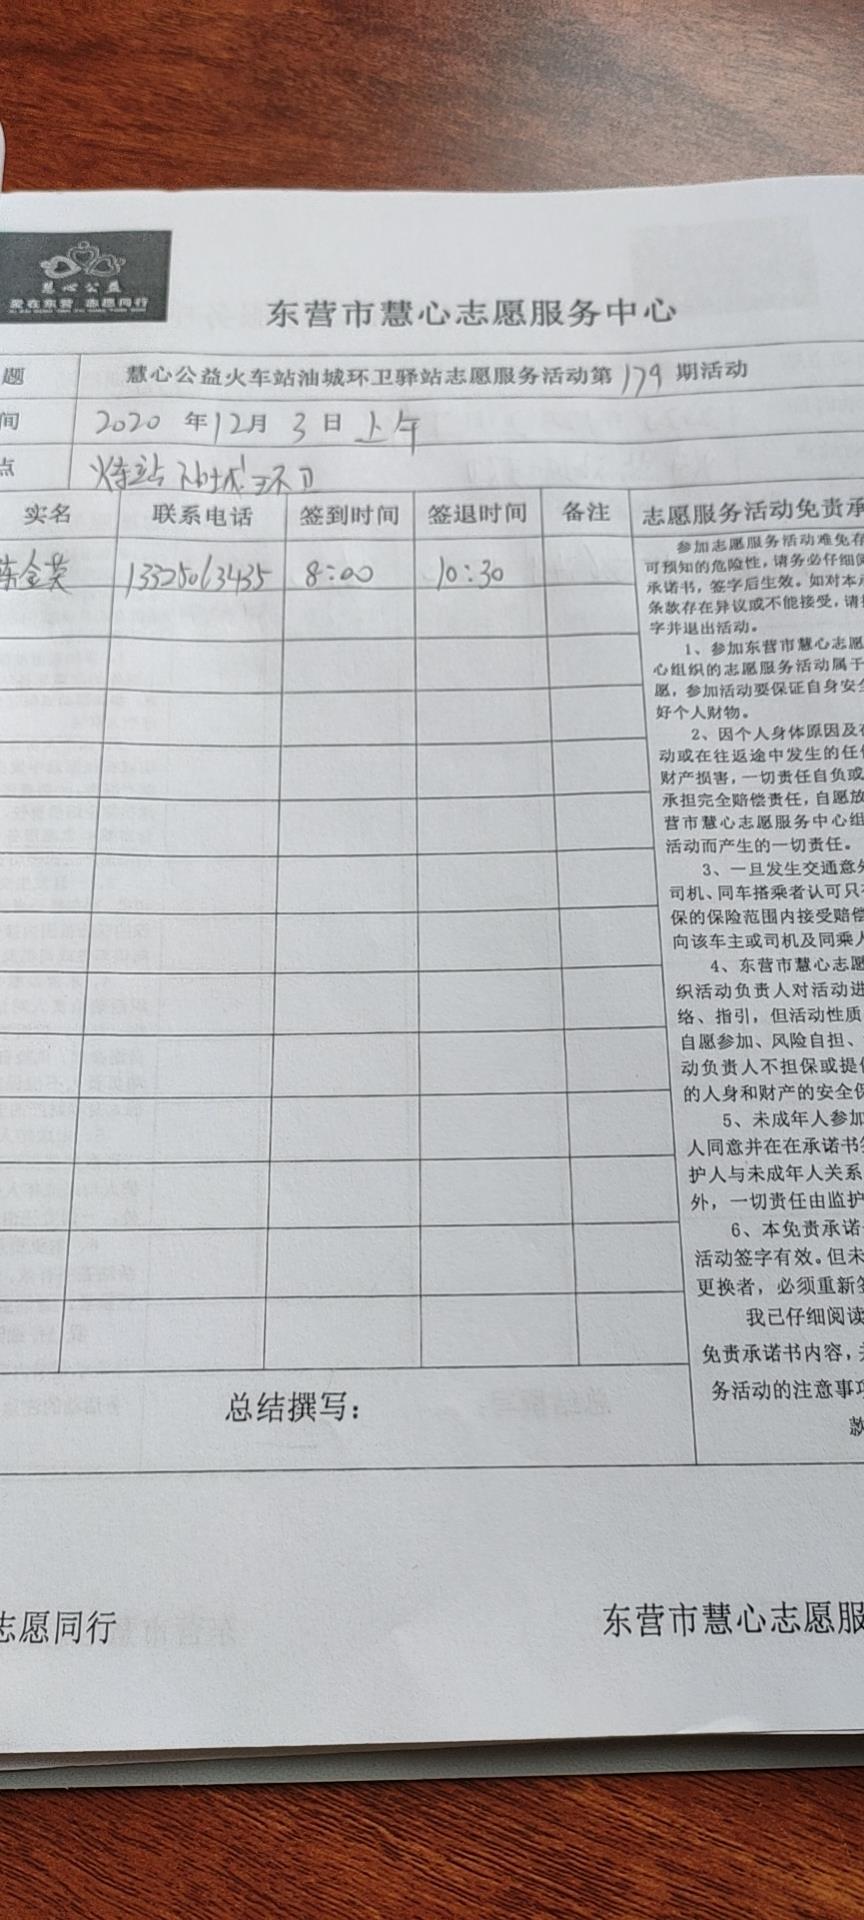 慧心公益
爱在东营 志愿同行
东营市慧心志愿服务中心
题 慧心公益火车站油城环卫驿站志愿服务活动第179期活动
间 2020年12月3日上午
点 火车站油城环卫
实名 联系电话 签到时间 签退时间 备注 志愿服务活动免责承
陈金英 13325063435 8:00 10:30
参加志愿服务活动难免存
可预知的危险性,请务必仔细阅
承诺书,签字后生效。如对本承
条款存在异议或不能接受,请
字并退出活动。
1、参加东营市慧心志愿
心组织的志愿服务活动属于
愿,参加活动要保证自身安全
好个人财物。
2、因个人身体原因及在
动或在往返途中发生的任何
财产损害,一切责任自负或
承担完全赔偿责任,自愿放
营市慧心志愿服务中心组
活动而产生的一切责任。
3、一旦发生交通意外
司机、同车搭乘者认可只
保的保险范围内接受赔偿
向该车主或司机及同乘人
4、东营市慧心志愿
织活动负责人对活动进
络、指引,但活动性质
自愿参加、风险自担、
动负责人不担保或提供
的人身和财产的安全保
5、未成年人参加
人同意并在在承诺书签
护人与未成年人关系
外,一切责任由监护
6、本免责承诺
活动签字有效。但未
更换者,必须重新签
我已仔细阅读
免责承诺书内容,并
务活动的注意事项
款
总结撰写:
志愿同行 东营市慧心志愿服